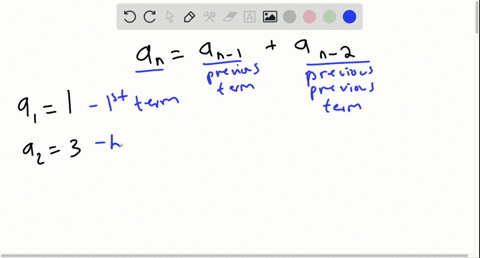 aₙ = aₙ₋₁ + aₙ₋₂
previous term
previous previous term
a₁ = 1 - 1st term
a₂ = 3 -